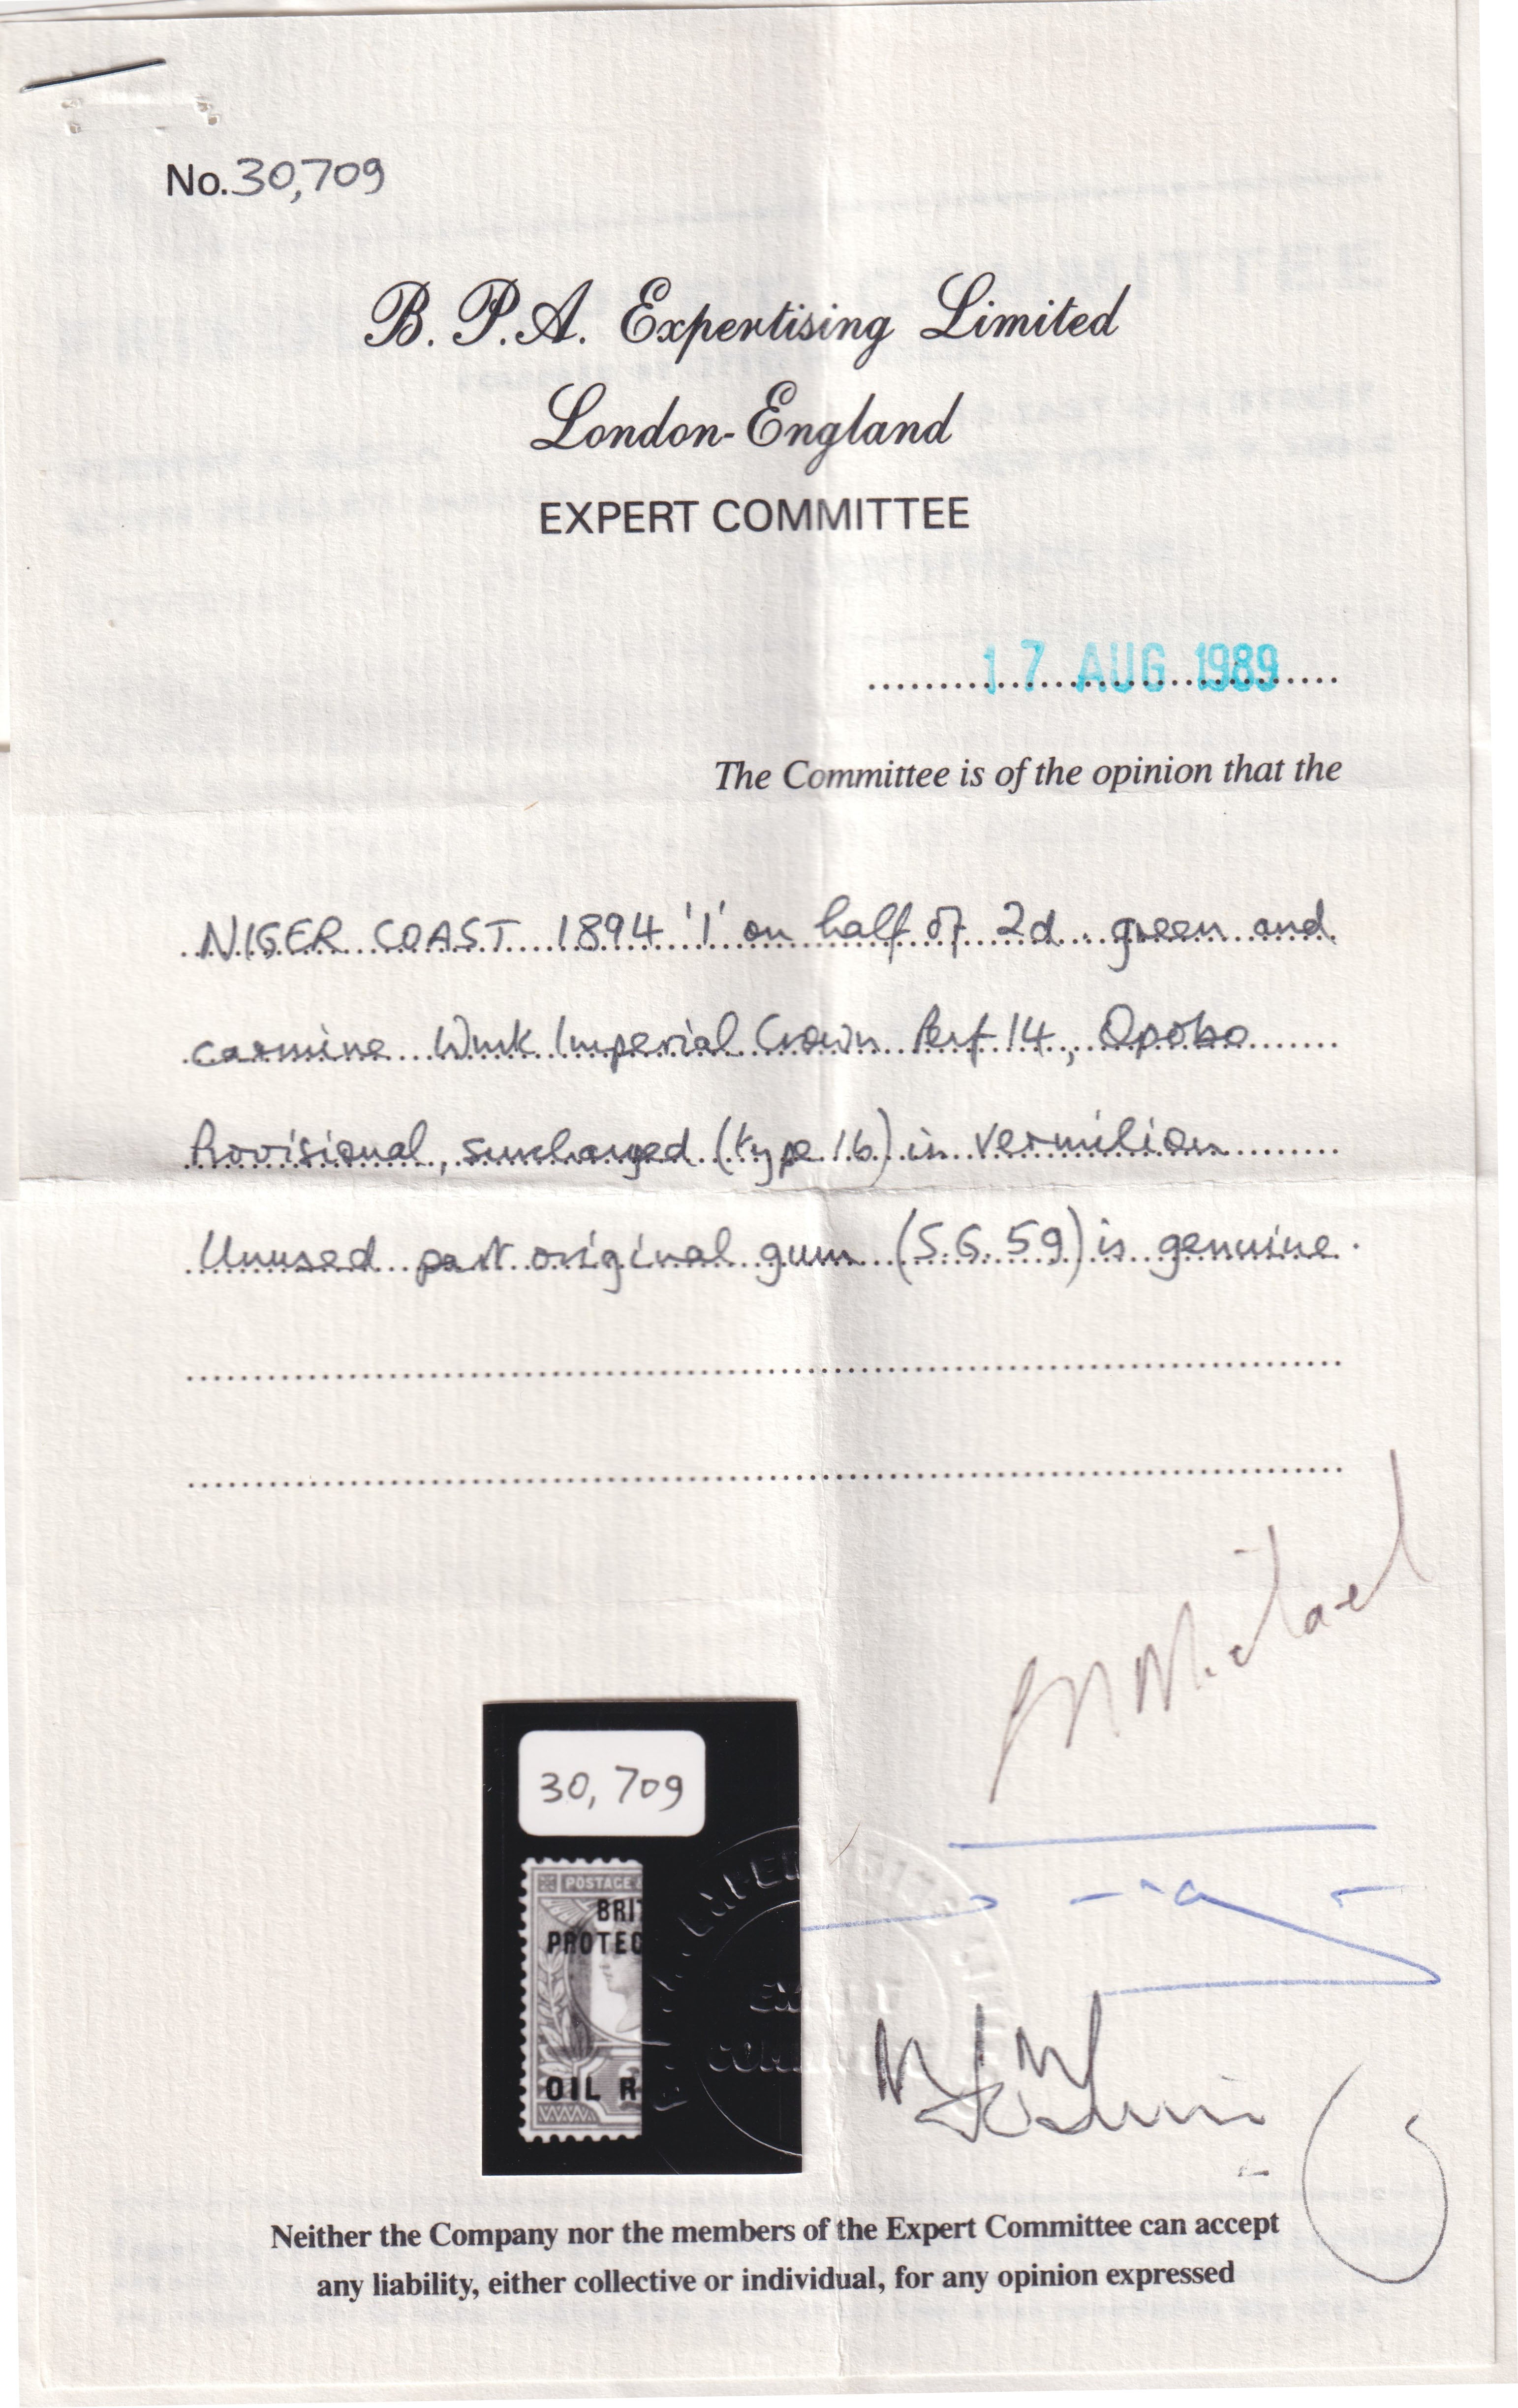 No. 30,709
B. P. A. Expertising Limited
London-England
EXPERT COMMITTEE
17 AUG 1989
The Committee is of the opinion that the
NIGER COAST 1894 '1' on half of 2d green and
carmine Wmk Imperial Crown Perf 14, Opobo
Provisional, surcharged (type 16) in vermilion
Unused part original gum (S.G. 59) is genuine.
M Michael
30,709
POSTAGE &
BRIT
PROTEC
OIL R
EXPERT
COMM
Neither the Company nor the members of the Expert Committee can accept
any liability, either collective or individual, for any opinion expressed